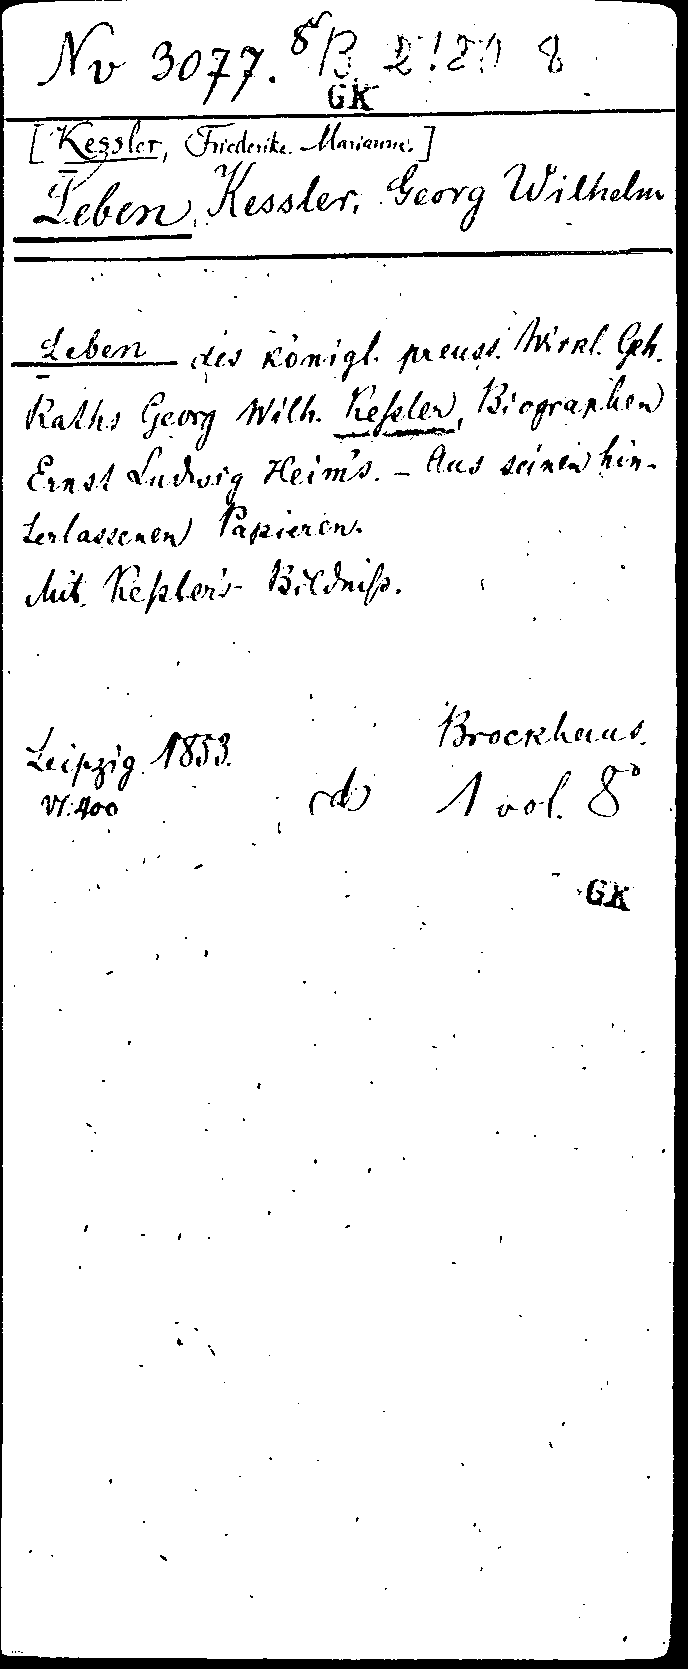 Nv 3077. 8°
GK
[Kessler, Friederike Marianne.]
Leben, Kessler, Georg Wilhelm
Leben des königl. preuss. Wirkl. Geh.
Raths Georg Wilh. Keßler, Biographen
Ernst Ludwig Heim's. – Aus seinen hin-
terlassenen Papieren.
Mit Keßler's Bildniß.
Leipzig 1853. Brockhaus.
VI. 400 1 vol. 8°
GK